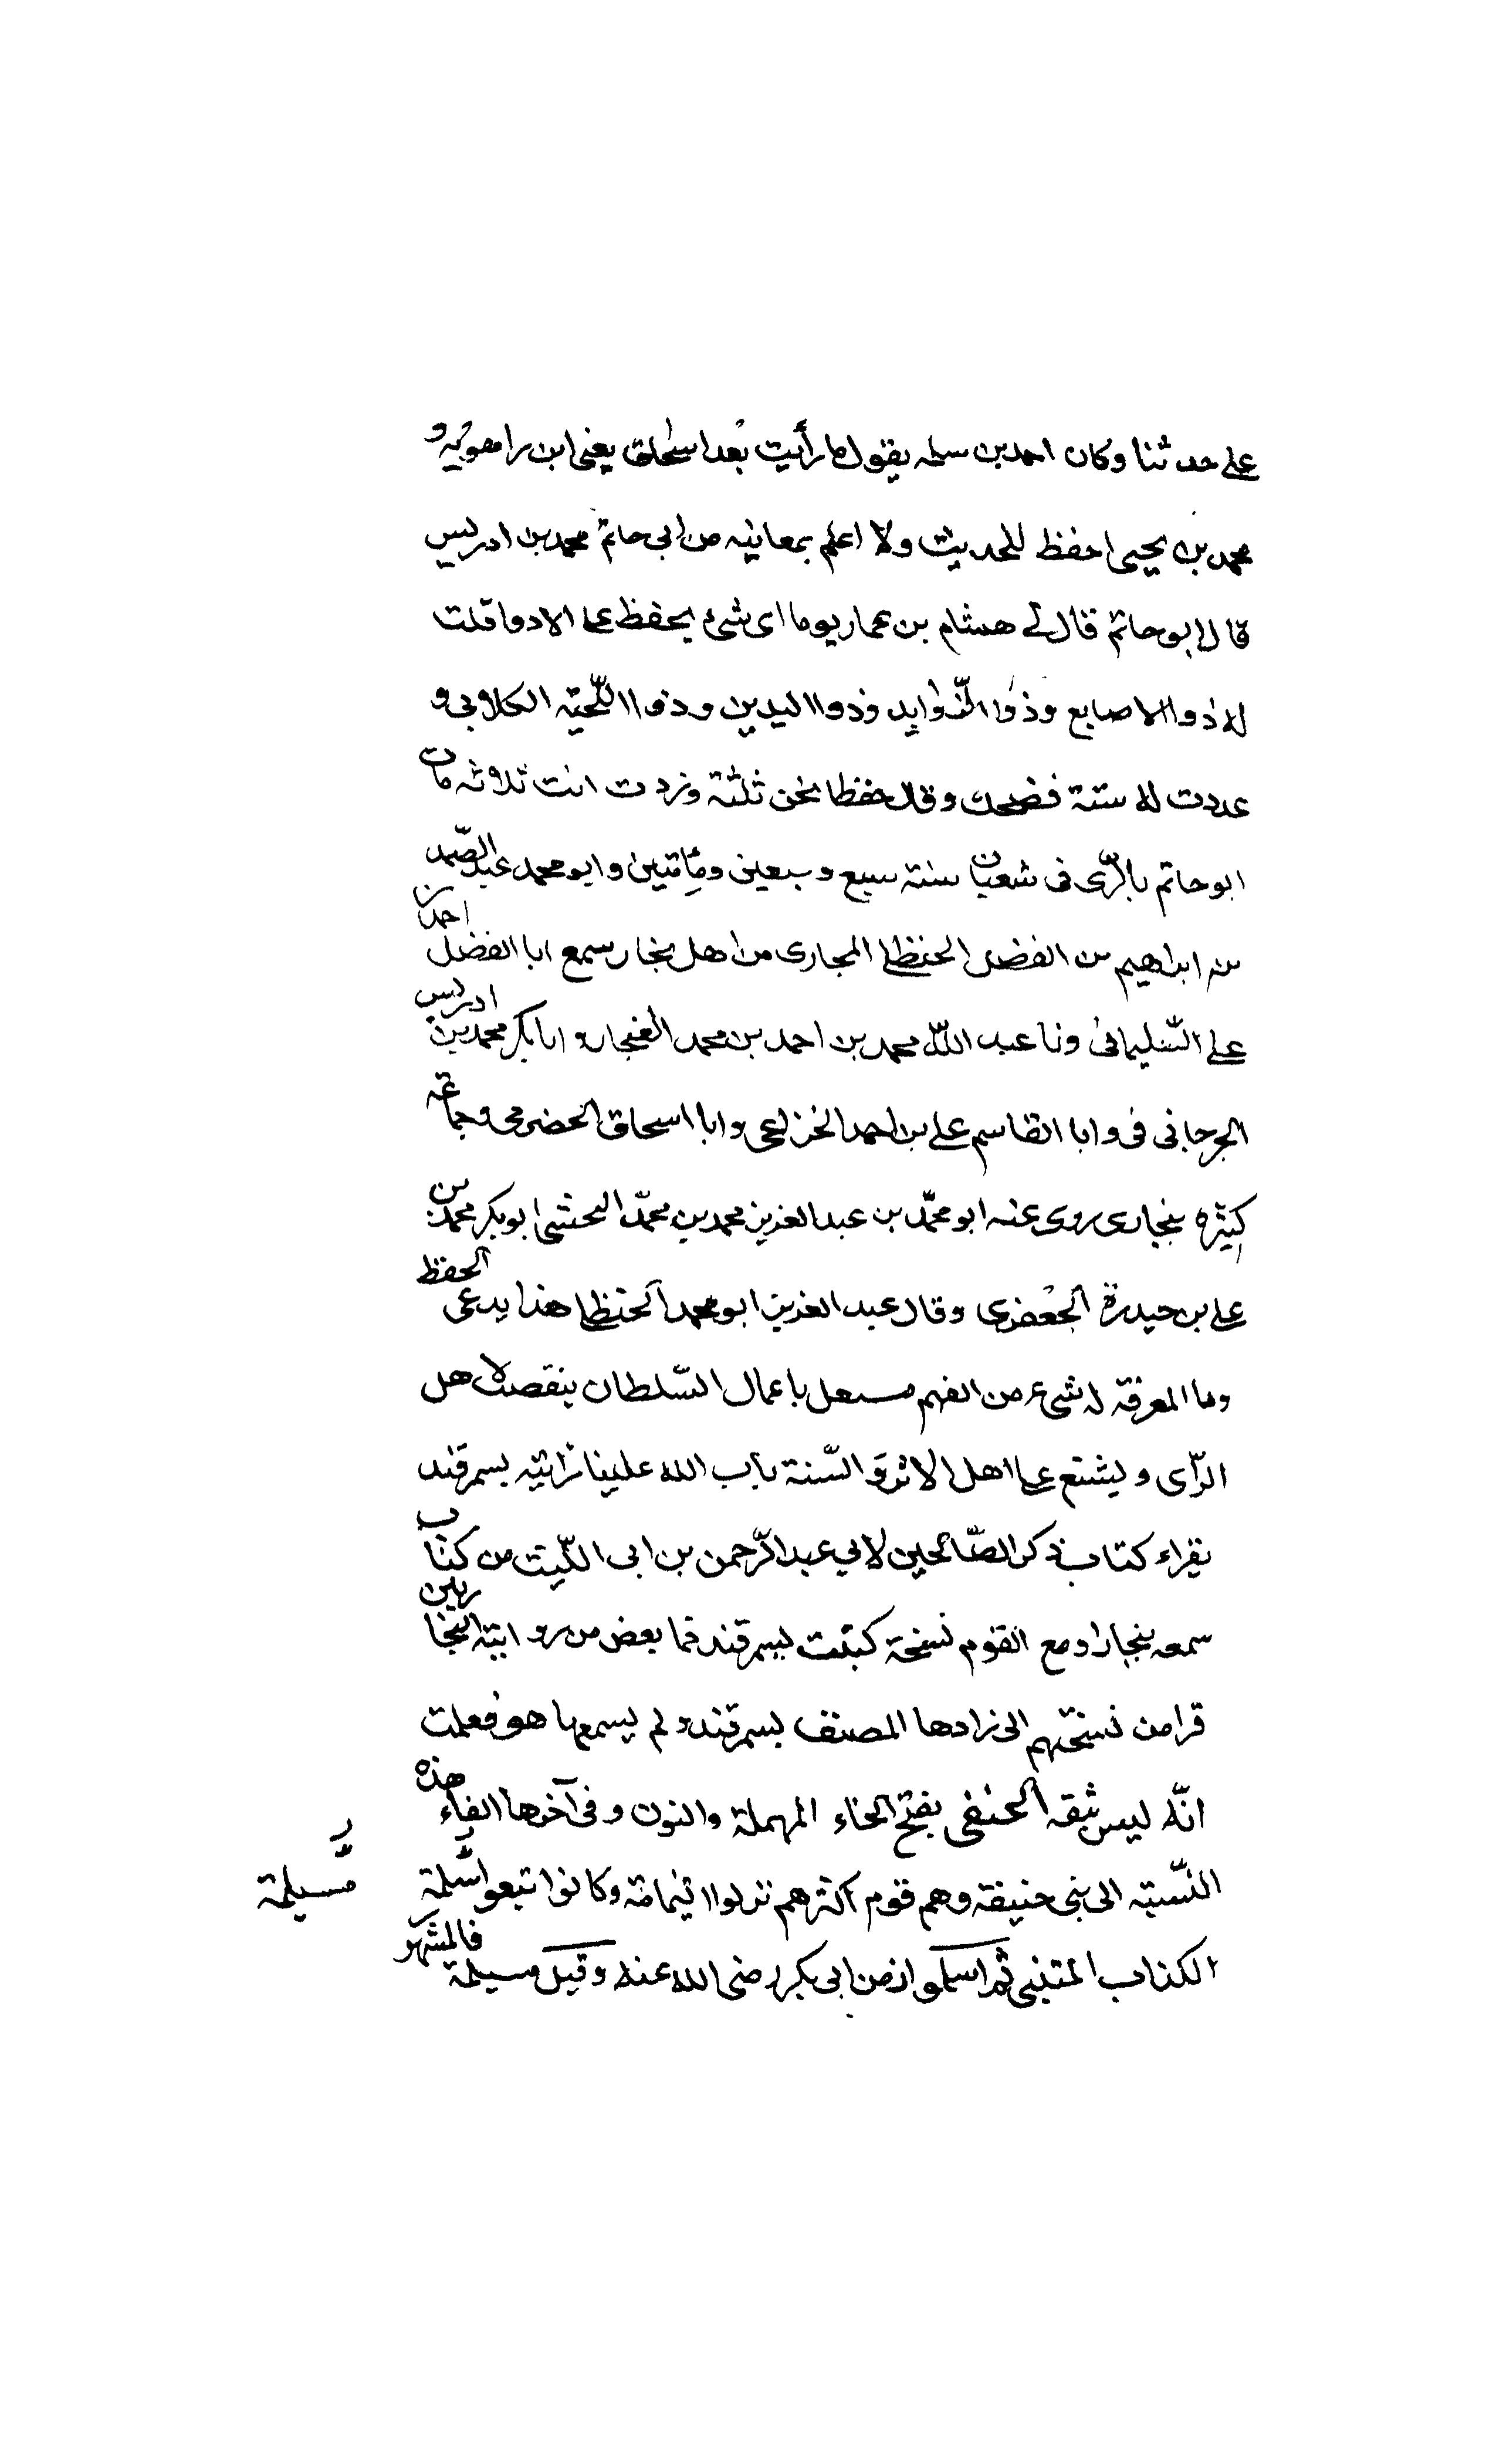 على حدثنا وكان احمد بن سلمه يقول ما رأيت بعد اسحاق يعني ابن راهويه و
محمد بن يحيى احفظ للحديث ولا اعلم بمعانيه من ابى حاتم محمد بن ادريس
قال ابو حاتم قال لى هشام بن عمار يوما اى شئ يحفظ عن الادوا قلت
له ذو الاصابع وذو الزوايد وذوا اليدين وذوا اللحية الكلابى و
عددت له ستة فضحك وقال حفظنا نحن ثلثة وزدت انت ثلاثه مات
ابو حاتم بالرّى فى شعبان سنة سبع وسبعين ومأتين وابو محمد عبد الصّمد
بن ابراهيم بن الفضل الحنظلى البخارى من اهل بخارا سمع ابا الفضل احمد بن
على السّليمانى وبا عبد الله محمد بن احمد بن محمد الغنجار و ابا بكر محمد بن ادريس
الجرجانى فى وابا القاسم على بن احمد الخزاعى وابا اسحاق الحضرمى وجماعة
كثيره ببخارى روى عنه ابو محمّد بن عبد العزيز محمد بن محمّد النخشبى ابو بكر محمد بن
على بن حيدرة الجعفرى وقال عبد العزيز ابو محمد الحنظلى هذا يدعى الحفظ
وما المعرفة له شئ من الفهم باعمال السّلطان ينقص لاهل
الرّاى ويشنع على اهل الاثر والسّنة تاب الله علينا رايته بسمرقند
يقراء كتاب ذكر الصّالحين لابي عبد الرّحمن بن ابى اللّيث من كتاب
سمعه ببخارا ومع القوم نسخة كتبت بسمرقند فما بعض من رواية البخاريين
قرا من نسختهم الى زادها المصنف بسمرقند ولم يسمعها هو فعلمت
انّه ليس بثقه الحنفى بفتح الحاء المهملة والنون وفى آخرها الفاء هذه
النّسبة الى بنى حنيفة وهم قوم اكثرهم نزلوا اليمامة وكانوا تبعوا سلمة
مسيلمة
الكذاب المتنبى ثم اسلموا زمن ابى بكر رضى الله عنه وقيل مسيلمة فالمشهر